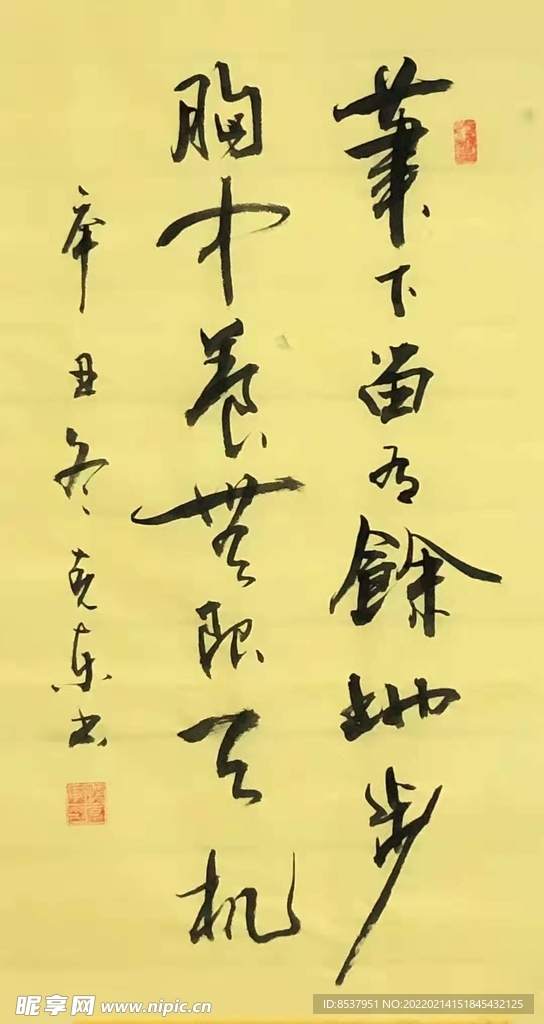 筆下留有餘地步
胸中養無限天机
辛丑冬克東书
昵享网 www.nipic.cn
ID:8537951 NO:20220214151845432125